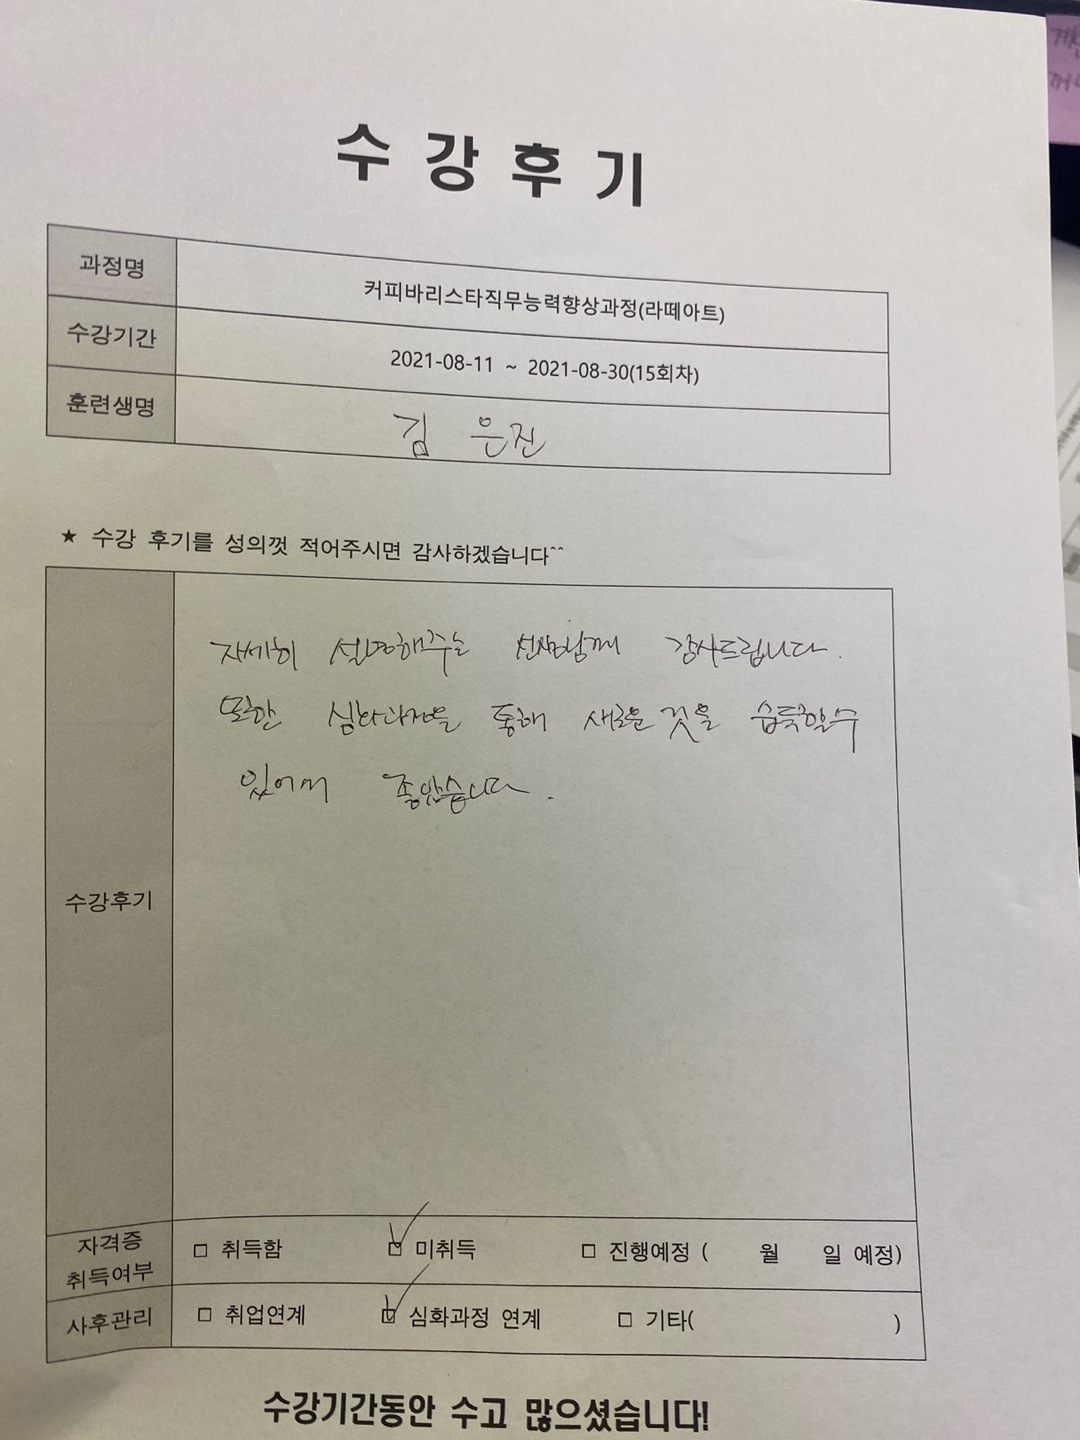 수강후기
과정명 커피바리스타직무능력향상과정(라떼아트)
수강기간 2021-08-11 ~ 2021-08-30(15회차)
훈련생명 김 은진
★ 수강 후기를 성의껏 적어주시면 감사하겠습니다^^
자세히 설명해주는 선생님께 감사드립니다.
또한 심화과정을 통해 새로운 것을 습득할수
있어서 좋았습니다.
수강후기
자격증
취득여부
□ 취득함 □ 미취득 □ 진행예정 ( 월 일 예정)
사후관리 □ 취업연계 □ 심화과정 연계 □ 기타( )
수강기간동안 수고 많으셨습니다!